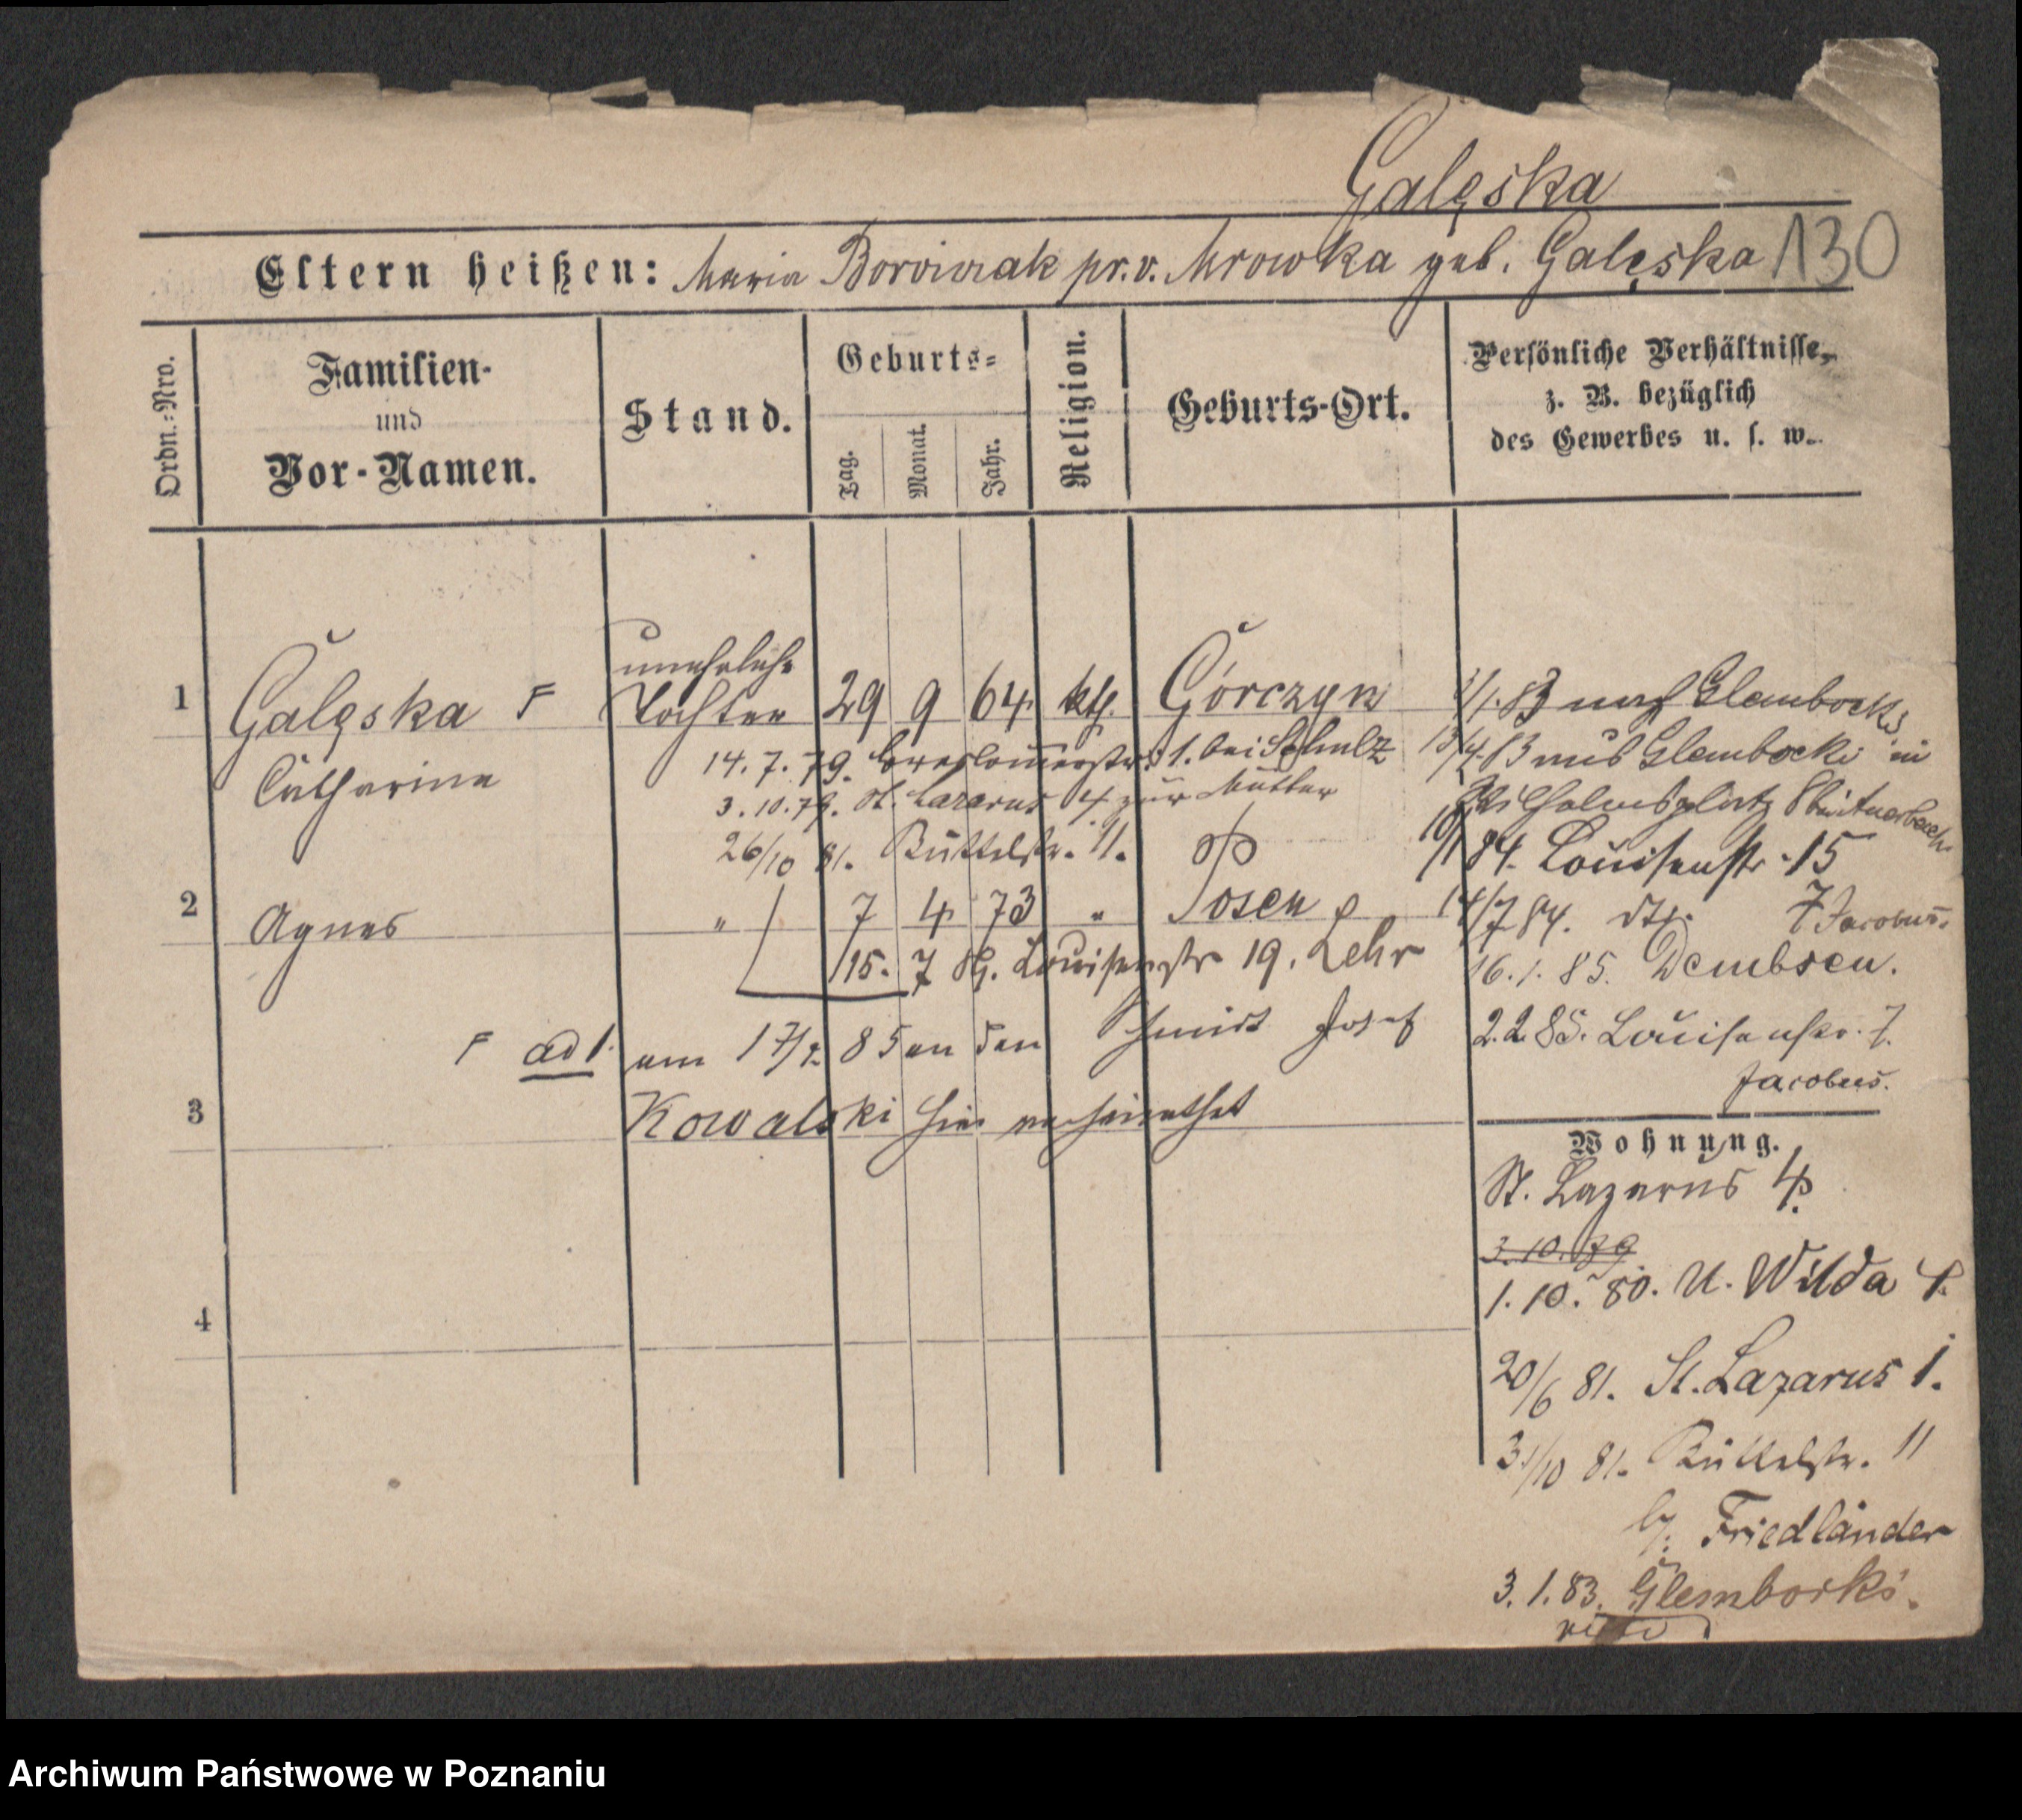 Galęska
Eltern heißen: Maria Borowiak pr. v. Mrowka geb. Galęska 130
Ordn.=Nro.
Familien-
und
Vor-Namen.
Stand.
Geburts=
Tag.
Monat.
Jahr.
Religion.
Geburts-Ort.
Persönliche Verhältnisse,
z. B. bezüglich
des Gewerbes u. s. w.
unehelige
1 Galęska F Tochter 29 9 64 kth. Górczyn
Catharina
14. 7. 79. Breslauerstr. 1. bei Schulz
3. 10. 79. St. Lazarus 4 zur Mutter
26/10 81. Büttelstr. 11.
2 Agnes " 7 4 73 " Posen
15. 7 84. Louisenstr 19. Lehr
F ad 1. am 17/2 85 an den Schmidt Josef
3 Kowalski hier verheirathet
4
3/1. 83 nach Glembocki
13/4. 83 aus Glembocki in
Wilhelmsplatz 8
10/1 84. Louisenstr. 15
14/7 84. dto. 7 Jacobus.
16. 1. 85. Dembsen.
2. 2. 85. Louisenstr. 7.
Jacobus.
Wohnung.
St. Lazarus 4.
3. 10. 79
1. 10. 80. U. Wilda 4.
20/6 81. St. Lazarus 1.
31/10 81. Büttelstr. 11
by. Friedländer
3. 1. 83. Glembocki.
Archiwum Państwowe w Poznaniu